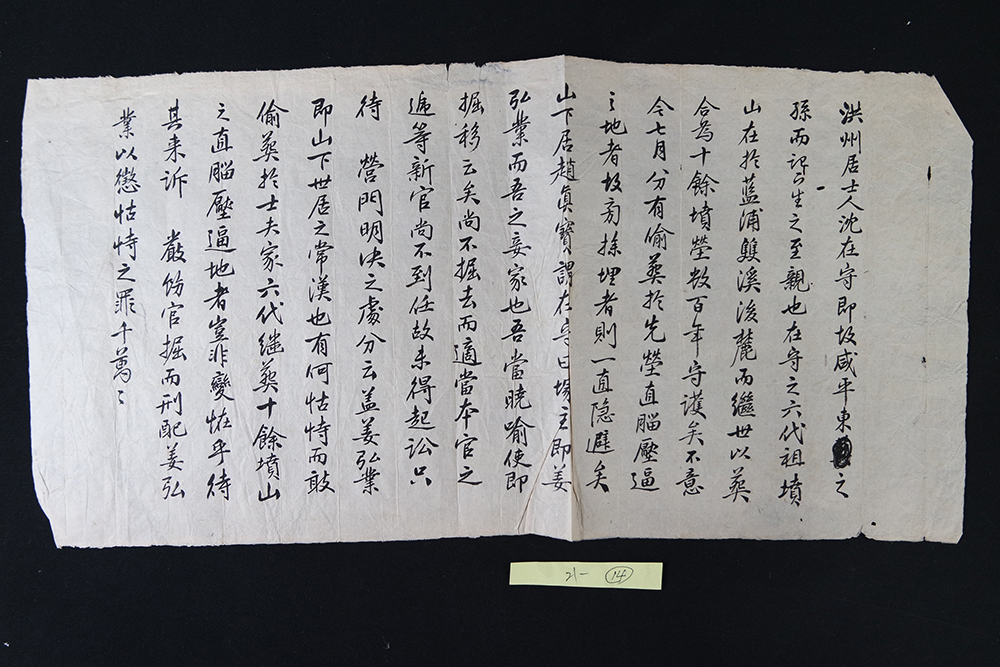 洪州居士人沈在守即故咸平東之
孫而記下生之至親也在守之六代祖墳
山在於藍浦雙溪後麓而繼世以葬
合為十餘墳塋数百年守護矣不意
今七月分有偷葬於先塋直腦壓逼
之地者故方採埋者則一直隐避矣
山下居趙真寶謂在守曰塚主即姜
弘業而吾之妾家也吾當曉喻使即
掘移云矣尚不掘去而適當本官之
遞等新官尚不到任故未得起訟只
待 營門明决之處分云盖姜弘業
即山下世居之常漢也有何怙恃而敢
偷葬於士夫家六代継葬十餘墳山
之直腦壓逼地者豈非變恠乎待
其来訴 嚴飭官掘而刑配姜弘
業以懲怙恃之罪千萬〻
21- ⑭